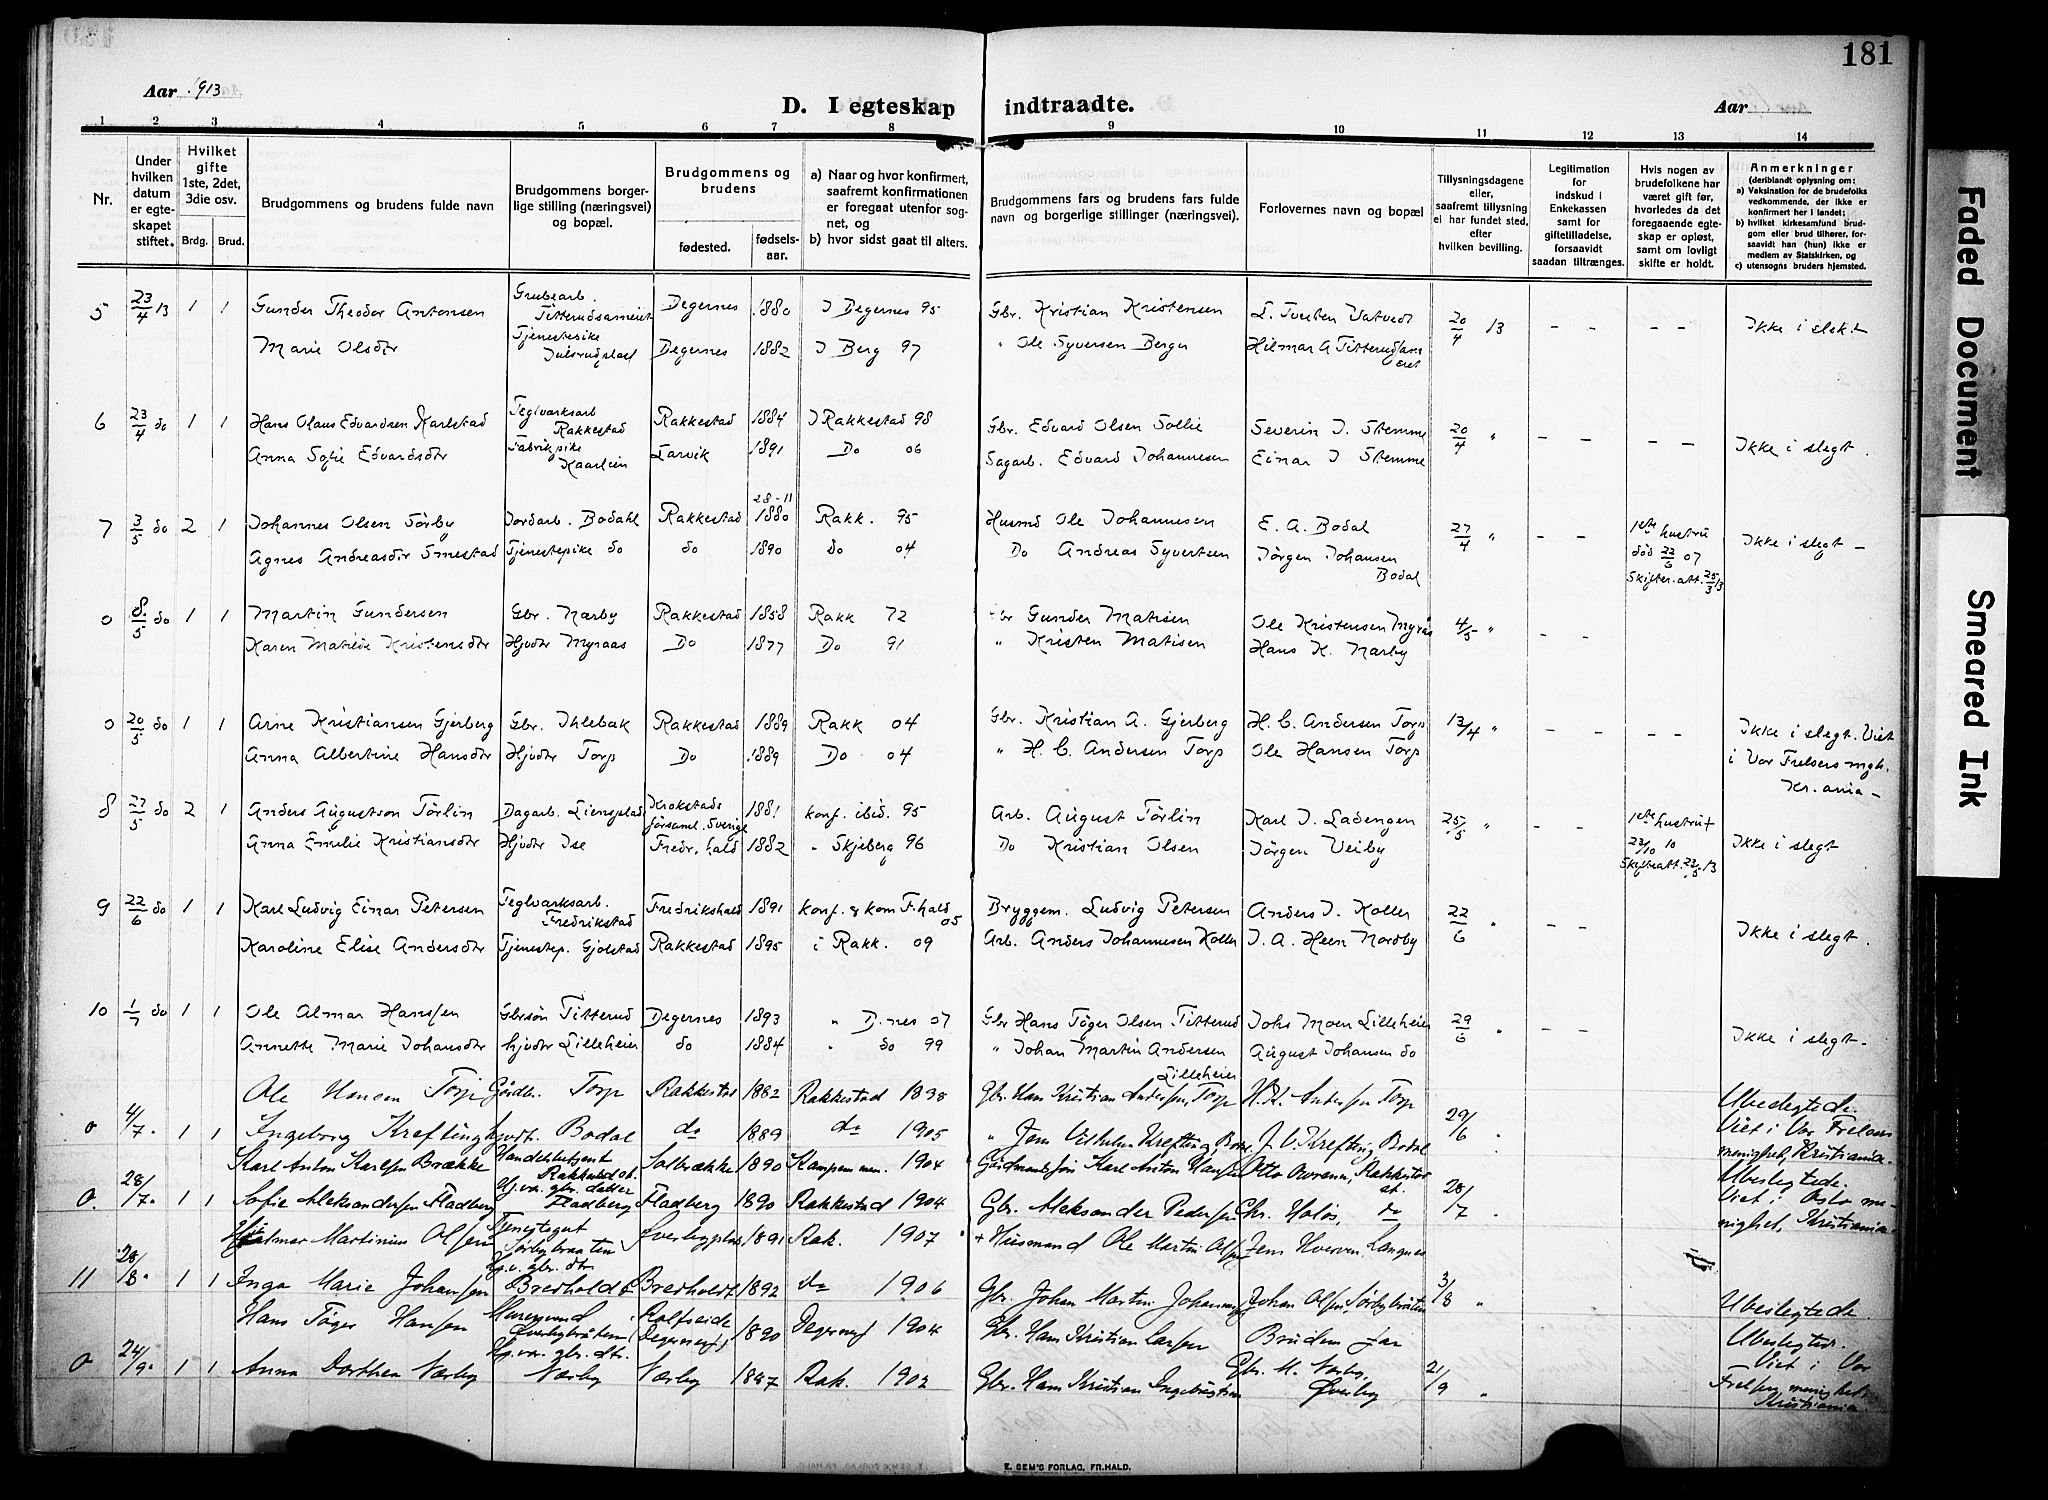 181
Aar 1913
D. I egteskap indtraadte.
Aar
1 2 3 4 5 6 7 8 9 10 11 12 13 14
Nr.
Under hvilken datum er egteskapet stiftet.
Hvilket gifte 1ste, 2det, 3die osv.
Brdg. Brud.
Brudgommens og brudens fulde navn
Brudgommens borgerlige stilling (næringsvei) og bopæl.
Brudgommens og brudens
fødested. fødselsaar.
a) Naar og hvor konfirmert, saafremt konfirmationen er foregaat utenfor sognet, og
b) hvor sidst gaat til alters.
Brudgommens fars og brudens fars fulde navn og borgerlige stillinger (næringsvei).
Forlovernes navn og bopæl
Tillysningsdagene eller, saafremt tillysning ei har fundet sted, efter hvilken bevilling.
Legitimation for indskud i Enkekassen samt for giftetilladelse, forsaavidt saadan tiltrænges.
Hvis nogen av brudefolkene har været gift før, hvorledes da det foregaaende egteskap er opløst, samt om lovligt skifte er holdt.
Anmerkninger
(deriblandt oplysning om:
a) Vaksination for de brudefolks vedkommende, der ikke er konfirmert her i landet;
b) hvilket kirkesamfund brudgom eller brud tilhører, forsaavidt han (hun) ikke er medlem av Statskirken, og
c) utensogns bruders hjemsted.
5 23/4 13 1 1 Gunder Theodor Antonsen Grubearb. Titterudsameiet Degernes 1880 I Degernes 95 Gbr. Kristian Kristensen L. Tveten Vatvedt 20/4 13 - - - - Ikke i slekt
Marie Olsdtr Tjenestepike Julsrudplads Degernes 1882 I Berg 97 " Ole Syversen Berger Hilmar A Titterudsameiet
6 23/4 do 1 1 Hans Olaus Edvardsen Karlstad Teglverksarb Rakkestad Rakkestad 1884 I Rakkestad 98 Gbr. Edvard Olsen Sollie Severin J. Stemme 20/4 " - - - - Ikke i slegt.
Anna Sofie Edvardsdtr Fabrikpike Kaarlien Larvik 1891 Do 06 Sagarb. Edvard Johannesen Einar J Stemme
7 3/5 do 2 1 Johannes Olsen Sørby Jordarb. Bodahl Rakkestad 28-11 1880 Rakk. 95 Husmd Ole Johannesen E. A. Bodal 27/4 " - - 1ste hustru død 22/6 07 Skifter.att. 25/3 13 Ikke i slegt -
Agnes Andreasdtr Smestad Tjenestepike do do 1890 do 04 Do Andreas Syvertsen Jørgen Johansen Bodal
0 8/5 do 1 1 Martin Gundersen Gbr. Nærby Rakkestad 1858 Rakk 72 Gbr Gunder Matisen Ole Kristensen Myrås 4/5 " - -
Karen Matilde Kristensdtr Hjvdtr Myraas Do 1877 Do 91 " Kristen Matisen Hans K. Nærby
0 20/5 do 1 1 Arne Kristiansen Gjerberg Gbr. Ihlebæk Rakkestad 1889 Rakk 04 Gbr. Kristian A. Gjerberg H. C. Andersen Torp 13/4 " - - - - Ikke i slegt. Viet i Vor Frelsers mgh. Kr.ania -
Anna Albertine Hansdtr Hjvdtr Torp Do 1889 Do 04 " H. C. Andersen Torp Ole Hansen Torp
8 27/5 do 2 1 Anders Augustson Törlin Dagarb. Liensplad Krokstads församl. Sverige 1881 konf. ibid. 95 Arb. August Törlin Karl J. Ladengen 25/5 " - - 1ste hustru † 23/10 10 Skifteatt. 22/5 13 Ikke i slegt
Anna Emilie Kristiansdtr Hjvdtr Ise Fredr.hald 1882 " Skjeberg 96 Do Kristian Olsen Jørgen Veiby
9 22/6 do 1 1 Karl Ludvig Einar Petersen Teglverksarb. Fredrikstad Fredrikshald 1891 konf. & kom F.hald 05 Bryggem. Ludvig Petersen Anders J. Koller 22/6 " - - Ikke i slegt.
Karoline Elise Andersdtr Tjenestep. Gjølstad Rakkestad 1895 i Rakk. 09 Arb. Anders Johannesen Koller J. A. Heen Nordby
10 1/7 do 1 1 Ole Almar Hanssen Gbrsøn Titterud Degernes 1893 " D.nes 07 Gbr Hans Tøger Olsen Titterud Johs Moen Lilleheier 29/6 " - - Ikke i slegt -
Annette Marie Johansdtr Hjvdtr Lilleheier do 1884 " do 99 " Johan Martin Andersen Lilleheier August Johansen do
0 4/7 " 1 1 Ole Hansen Torp Gårdbr. Torp Rakkestad 1882 Rakkestad 1898 Gbr. Hans Kristian Andersen, Torp H. K. Andersen Torp 29/6 " Ubeslegtede. Viet i Vor Frelsers menighet, Kristiania.
Ingeborg Krefting Hjvdt. Bodal do 1889 do 1905 " Jens Vilhelm Krefting, Bodal J. V. Krefting, Bodal
0. 28/7 " 1 1 Karl Anton Karlsen Brække Handelsbetjent Rakkestad st. Solbrække 1890 Kampen men. 1904 Gårdmandssøn Karl Anton Hansen Otto Sørensen, Rakkestad st. 20/7 " Ubeslegtede. Viet i Oslo menighet, Kristiania.
Sofie Aleksandersen Fladberg Hj.vær. gbr. datter Fladberg Fladberg 1890 Rakkestad 1904 Gbr. Aleksander Pedersen Chr. Holøs, do
11 28/8 " 1 1 Hjalmar Martinius Olsen Tjenestegut Sørbybraaten Øverbyplads 1891 Rak. 1907 + Husmand Ole Martin Olsen Jens Hverven, Langnes 3/8 " Ubeslegtede.
Inga Marie Johansen Hj.v. gbr. dtr. Bredholdt Bredholdt 1892 do 1906 Gbr. Johan Martin Johannessen Johan Olsen, Sørbybråten
0 24/9 " 1 1 Hans Tøger Hansen Murersvend Øverbybråten Holfseide (Degernes) 1890 Degernes 1904 Gbr. Hans Kristian Larsen Brudens far 21/9 " Ubeslegtede. Viet i Vor Frelsers menighet Kristiania.
Anna Dorthea Nærby Hj.vær. gbr. dtr. Nærby Nærby 1887 Rak. 1902 Gbr. Hans Kristian Ingebrigtsen Gbr. M. Nærby, Øverby
E. SEM'S FORLAG, FR.HALD.
Faded Document
Smeared Ink